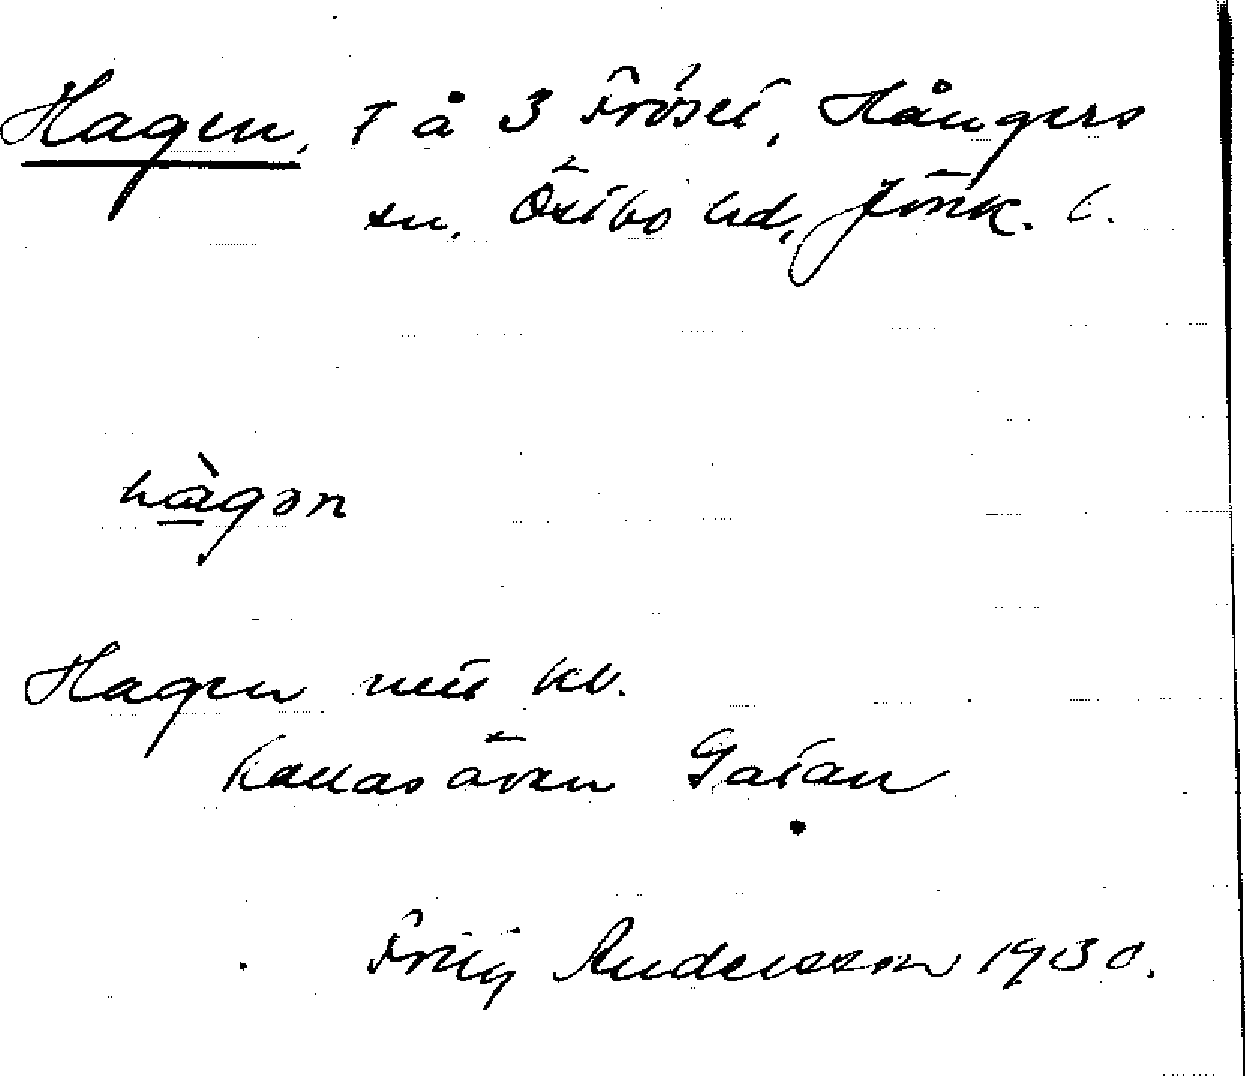 Hagen, T å 3 Fröset, Hångers
sn, Östbo hd, Jönk. l.
hàgən
Hagen
kallas även Gatan
Fritz Andersson 1930.